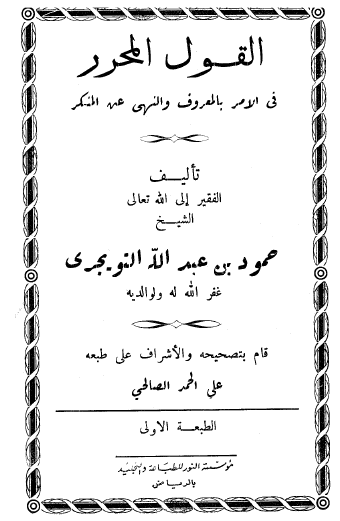 القول المحرر
في الامر بالمعروف والنهي عن المنكر
تأليف
الفقير إلى الله تعالى
الشيخ
حمود بن عبد الله التويجرى
غفر الله له ولوالديه
قام بتصحيحه والأشراف على طبعه
علي الحمد الصالحي
الطبعة الاولى
مؤسسة النور للطباعة والتجليد
بالرياض